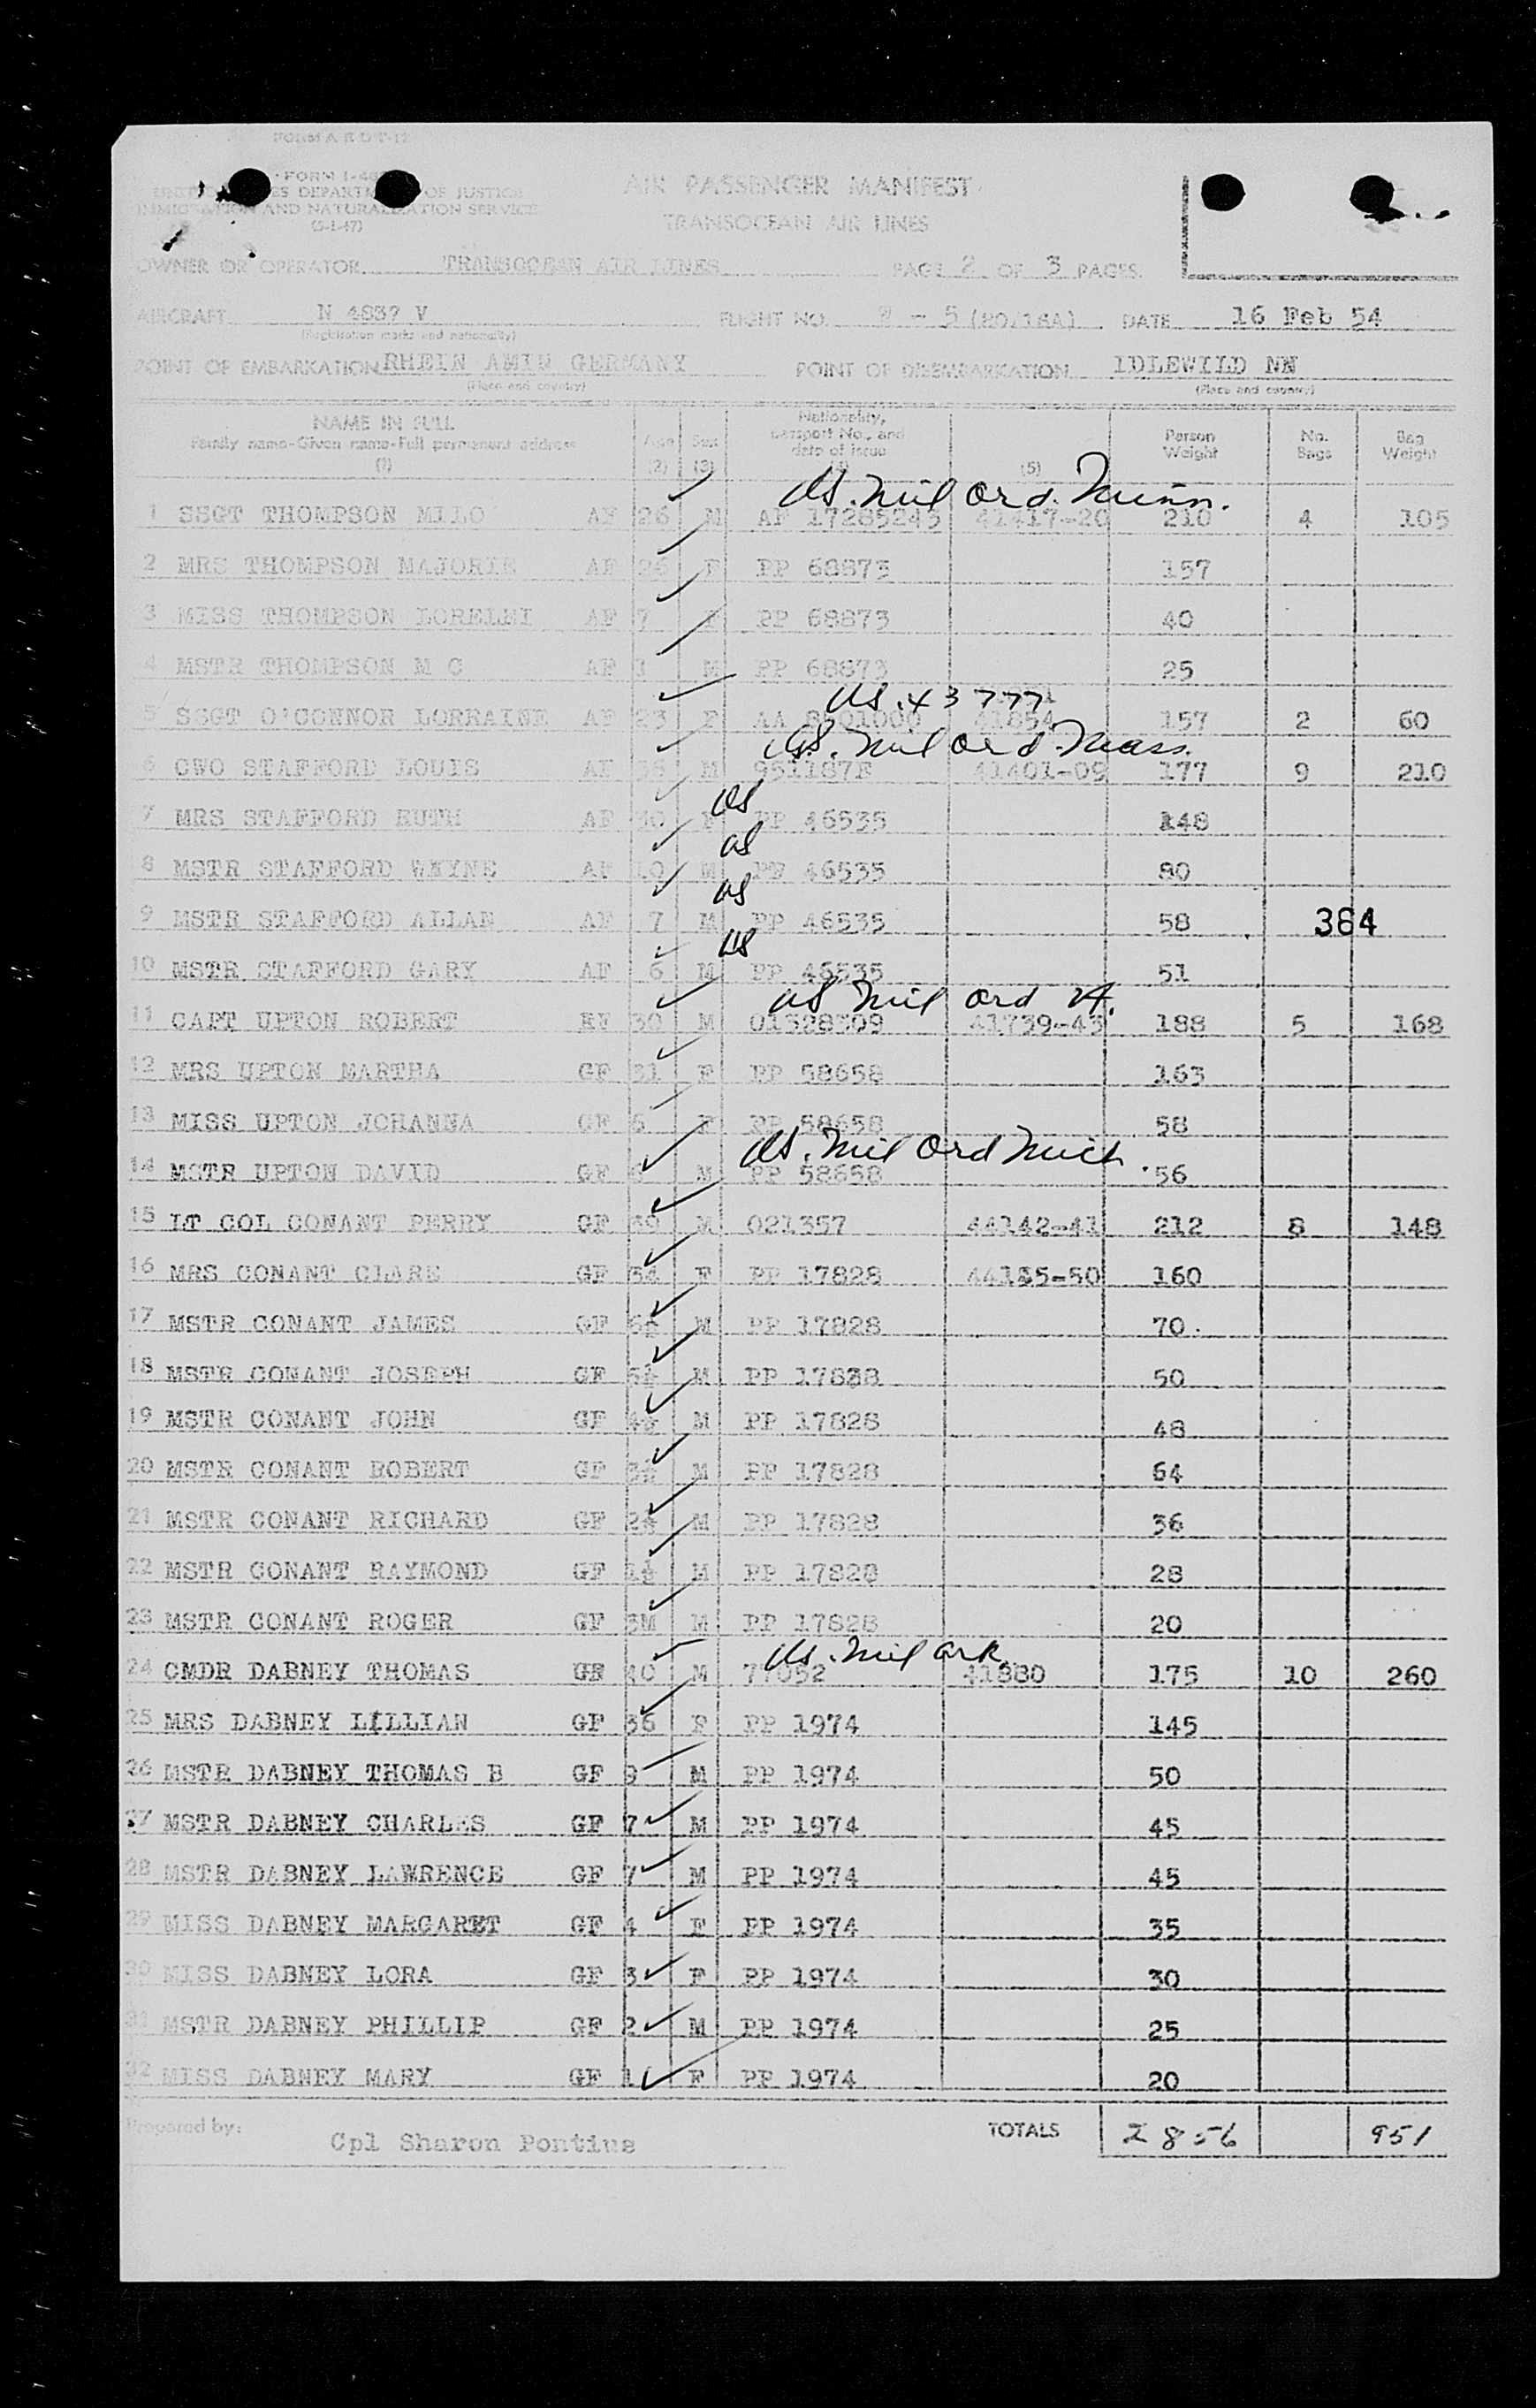 FORM A R D T-12
FORM I-46
UNITED STATES DEPARTMENT OF JUSTICE
IMMIGRATION AND NATURALIZATION SERVICE
(5-1-47)
AIR PASSENGER MANIFEST
TRANSOCEAN AIR LINES
OWNER OR OPERATOR TRANSOCEAN AIR LINES PAGE 2 OF 3 PAGES
AIRCRAFT N 4839 V FLIGHT NO. - 5 (20/18A) DATE 16 Feb 54
(Registration marks and nationality)
POINT OF EMBARKATION RHEIN AMIN GERMANY POINT OF DISEMBARKATION IDLEWILD NN
(Place and country) (Place and country)
NAME IN FULL
Family name-Given name-Full permanent address
(1)
Age
(2)
Sex
(3)
Nationality,
passport No., and
date of issue
(4)
(5)
Person
Weight
No.
Bags
Bag
Weight
US. Mil ord. Minn.
1 SSGT THOMPSON MILO AF 26 M AF 17285245 41417-20 210 4 105
2 MRS THOMPSON MAJORIE AF 26 F PP 68873 157
3 MISS THOMPSON LORELEI AF 7 F PP 68873 40
4 MSTR THOMPSON M C AF 1 M PP 68873 25
US. 43777
5 SSGT O'CONNOR LORRAINE AF 23 F AA 8501000 41854 157 2 60
US. Mil ord. Mass.
6 CWO STAFFORD LOUIS AF 38 M 951187E 41401-09 177 9 210
US
7 MRS STAFFORD RUTH AF 30 F PP 46535 148
US
8 MSTR STAFFORD WAYNE AF 10 M PP 46535 80
US
9 MSTR STAFFORD ALLAN AF 7 M PP 46535 58 364
US
10 MSTR STAFFORD GARY AF 6 M PP 46535 51
US Mil ord VA.
11 CAPT UPTON ROBERT 30 M 01328309 41739-43 188 5 168
12 MRS UPTON MARTHA GF 31 F PP 58658 163
13 MISS UPTON JOHANNA GF 6 F PP 58658 58
US. Mil Ord Mich.
14 MSTR UPTON DAVID GF M PP 58658 56
15 LT COL CONANT PERRY GF 39 M 021357 44142-41 212 8 148
16 MRS CONANT CLARE GF 34 F PP 17828 44145-50 160
17 MSTR CONANT JAMES GF 6½ M PP 17828 70
18 MSTR CONANT JOSEPH GF 5½ M PP 17838 50
19 MSTR CONANT JOHN GF 4½ M PP 17828 48
20 MSTR CONANT ROBERT GF 3½ M PP 17828 64
21 MSTR CONANT RICHARD GF 2½ M PP 17828 36
22 MSTR CONANT RAYMOND GF 1½ M PP 17828 28
23 MSTR CONANT ROGER GF 3M M PP 17828 20
US. Mil Ark
24 CMDR DABNEY THOMAS GF 40 M 77052 41880 175 10 260
25 MRS DABNEY LILLIAN GF 36 F PP 1974 145
26 MSTR DABNEY THOMAS B GF 9 M PP 1974 50
27 MSTR DABNEY CHARLES GF 7 M PP 1974 45
28 MSTR DABNEY LAWRENCE GF 7 M PP 1974 45
29 MISS DABNEY MARGARET GF 4 F PP 1974 35
30 MISS DABNEY LORA GF 3 F PP 1974 30
31 MSTR DABNEY PHILLIP GF 2 M PP 1974 25
32 MISS DABNEY MARY GF 1 F PP 1974 20
Prepared by: Cpl Sharon Pontius TOTALS 2856 951